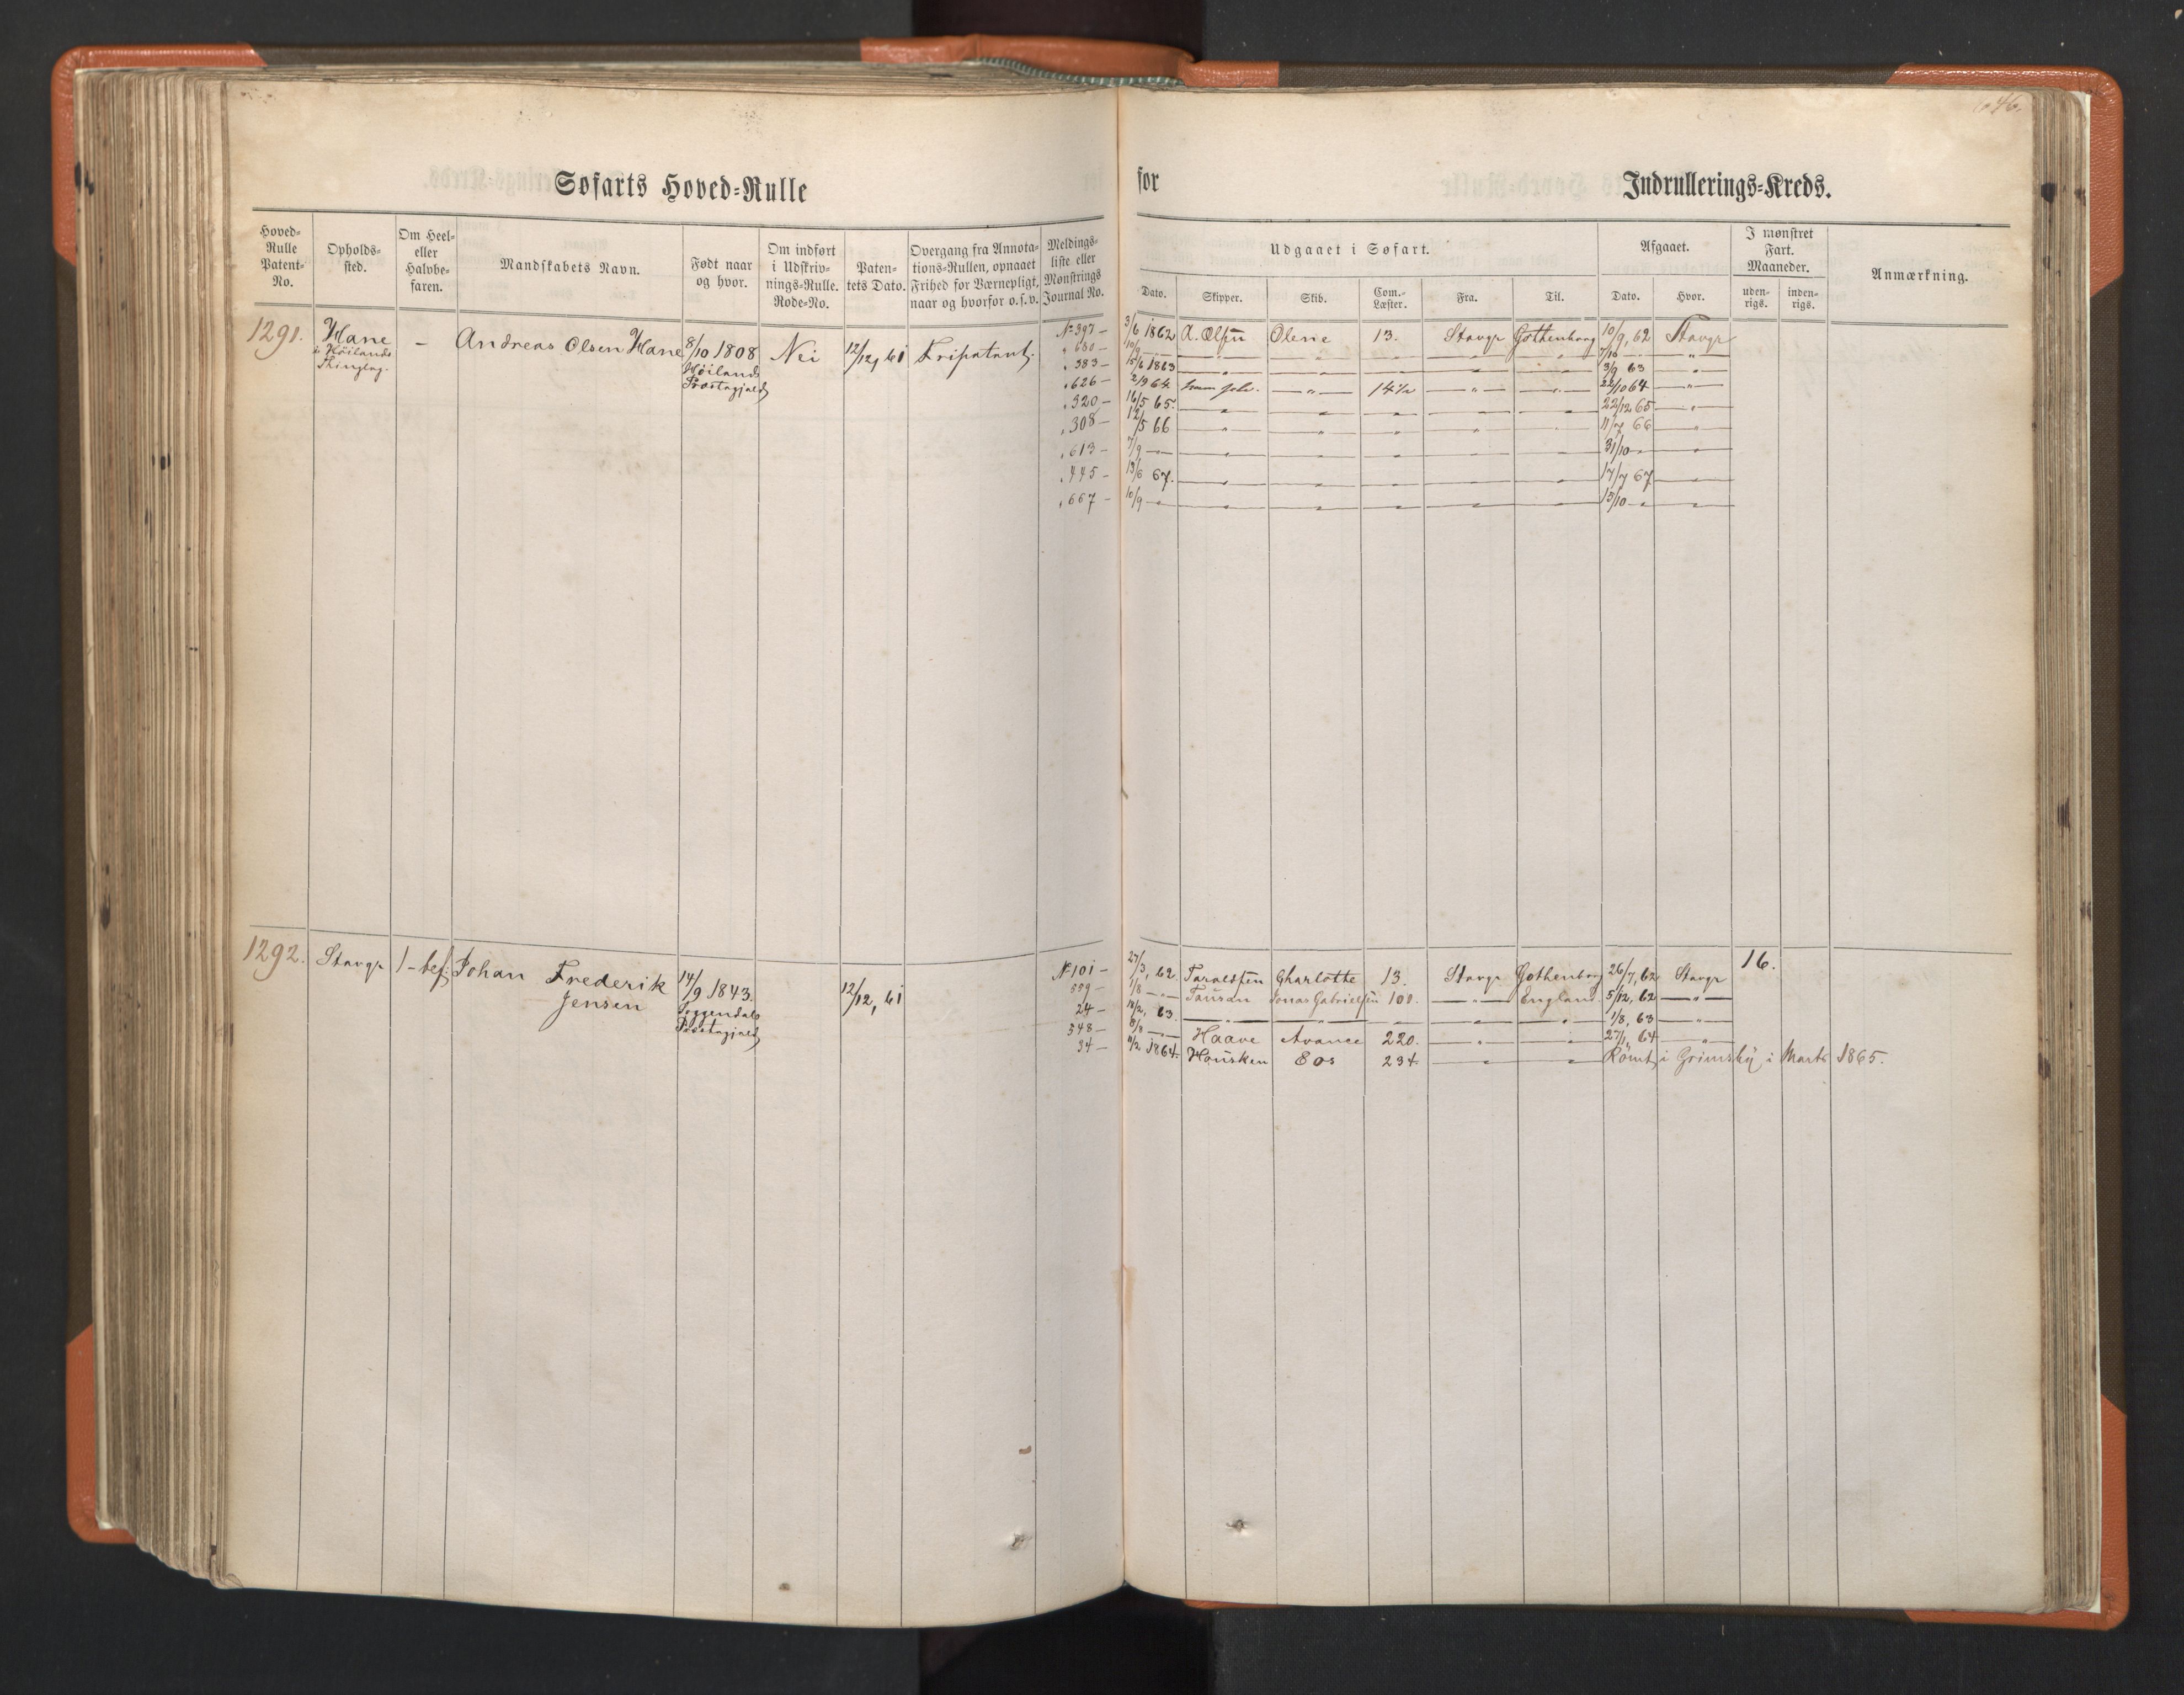 646.
Søfarts Hoved=Rulle for Indrullerings=Kreds.
Hoved=Rulle Patent=No. Opholds=sted. Om Heel= eller Halvbe=faren. Mandskabets Navn. Født naar og hvor. Om indført i Udskriv=nings=Rulle. Rode=No. Paten=tets Dato. Overgang fra Annota=tions=Rullen, opnaaet Frihed for Værnepligt, naar og hvorfor o.s.v. Meldings=liste eller Mønstrings Journal No.
Udgaaet i Søfart. Afgaaet. I mønstret Fart. Maaneder. Anmærkning.
Dato. Skipper. Skib. Com.=Læster. Fra. Til. Dato. Hvor. uden=rigs. inden=rigs.
1291. Hane - Andreas Olsen Hane 8/10 1808 Nei 12/12, 61 Fripatent. No 397 - 3/6 1862 A. Olsen Olene 13. Stavgr Gothenborg 10/9, 62 Stavgr
i Höilands Höilands " 680 - 10/9 - " - " - " - " - " - " 7/10 - " - " -
Thinglag. Præstegjeld " 383 - 15/6 1863 - " - " - " - " - " - 3/9 63 - " -
" 626 - 2/9 64. - " - 14 1/2 - " - " - 22/10 64 - " -
" 320 - 16/5 65. - " - " - " - " - " - 22/12 65 - " -
" 308 - 12/5 66 - " - " - " - " - " - 11/7 66 - " -
" 613 - 7/9 - " - " - " - " - " - " - 31/10 - " - " -
" 445 - 13/6 67. - " - " - " - " - " - 17/7 67 - " -
" 667 - 10/9 - " - " - " - " - " - " - 13/10 - " - " -
1292. Stavgr 1 - bef. Johan Frederik 14/9 1843. 12/12, 61 No 101 - 27/3, 62 Taraldsen Charlotte 13. Stavgr Gothenborg 26/7, 62 Stavgr 16.
Jensen Soggendals 559 - 1/8 - " - Tausan Jonas Gabrielsen 100. - " - England. 5/12, 62 - " -
Præstegjeld 24 - 14/2, 63. - " - " - " - " - " - 1/8, 63 - " -
548 - 8/8 - " - Haave Avance 220. - " - " - 27/1, 64 - " -
34 - 11/2 1864. Hausken Eos 234 - " - " - Römt i Grimsby i Marts 1865.